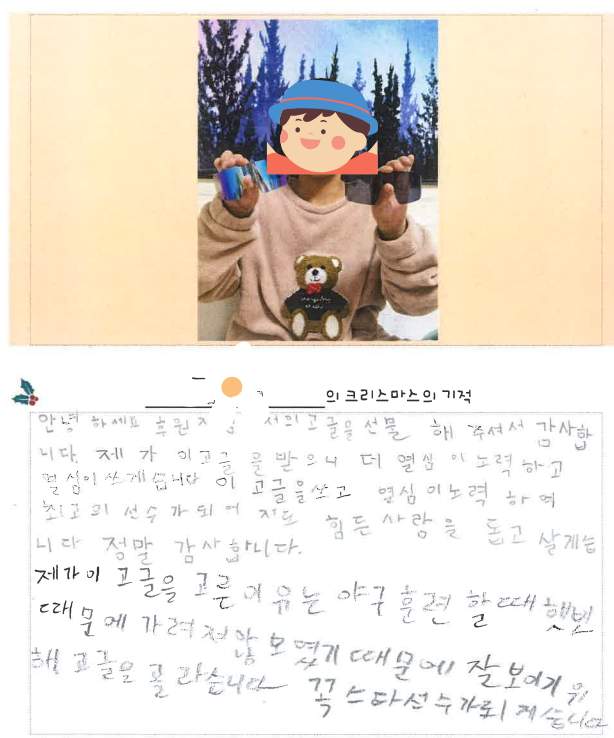 의 크리스마스의 기적
안녕 하세요 후원자 고글을 선물 해 주셔서 감사합
니다. 제가 이 고글 을 받으니 더 열심 이 노력 하고
열심이 쓰게습니다 이 고글을 쓰고 열심 이 노력 하여
최고의 선수 가 되어 저도 힘든 사람을 돕고 살게습
니다 정말 감사합니다.
제가 이 고글을 고른 이유는 야구 훈련 할 때 햇빛
때문에 가려져 안 보였기 때문에 잘 보이기 위
해 고글을 골라습니다 꼭 스타선수가 되게습니다